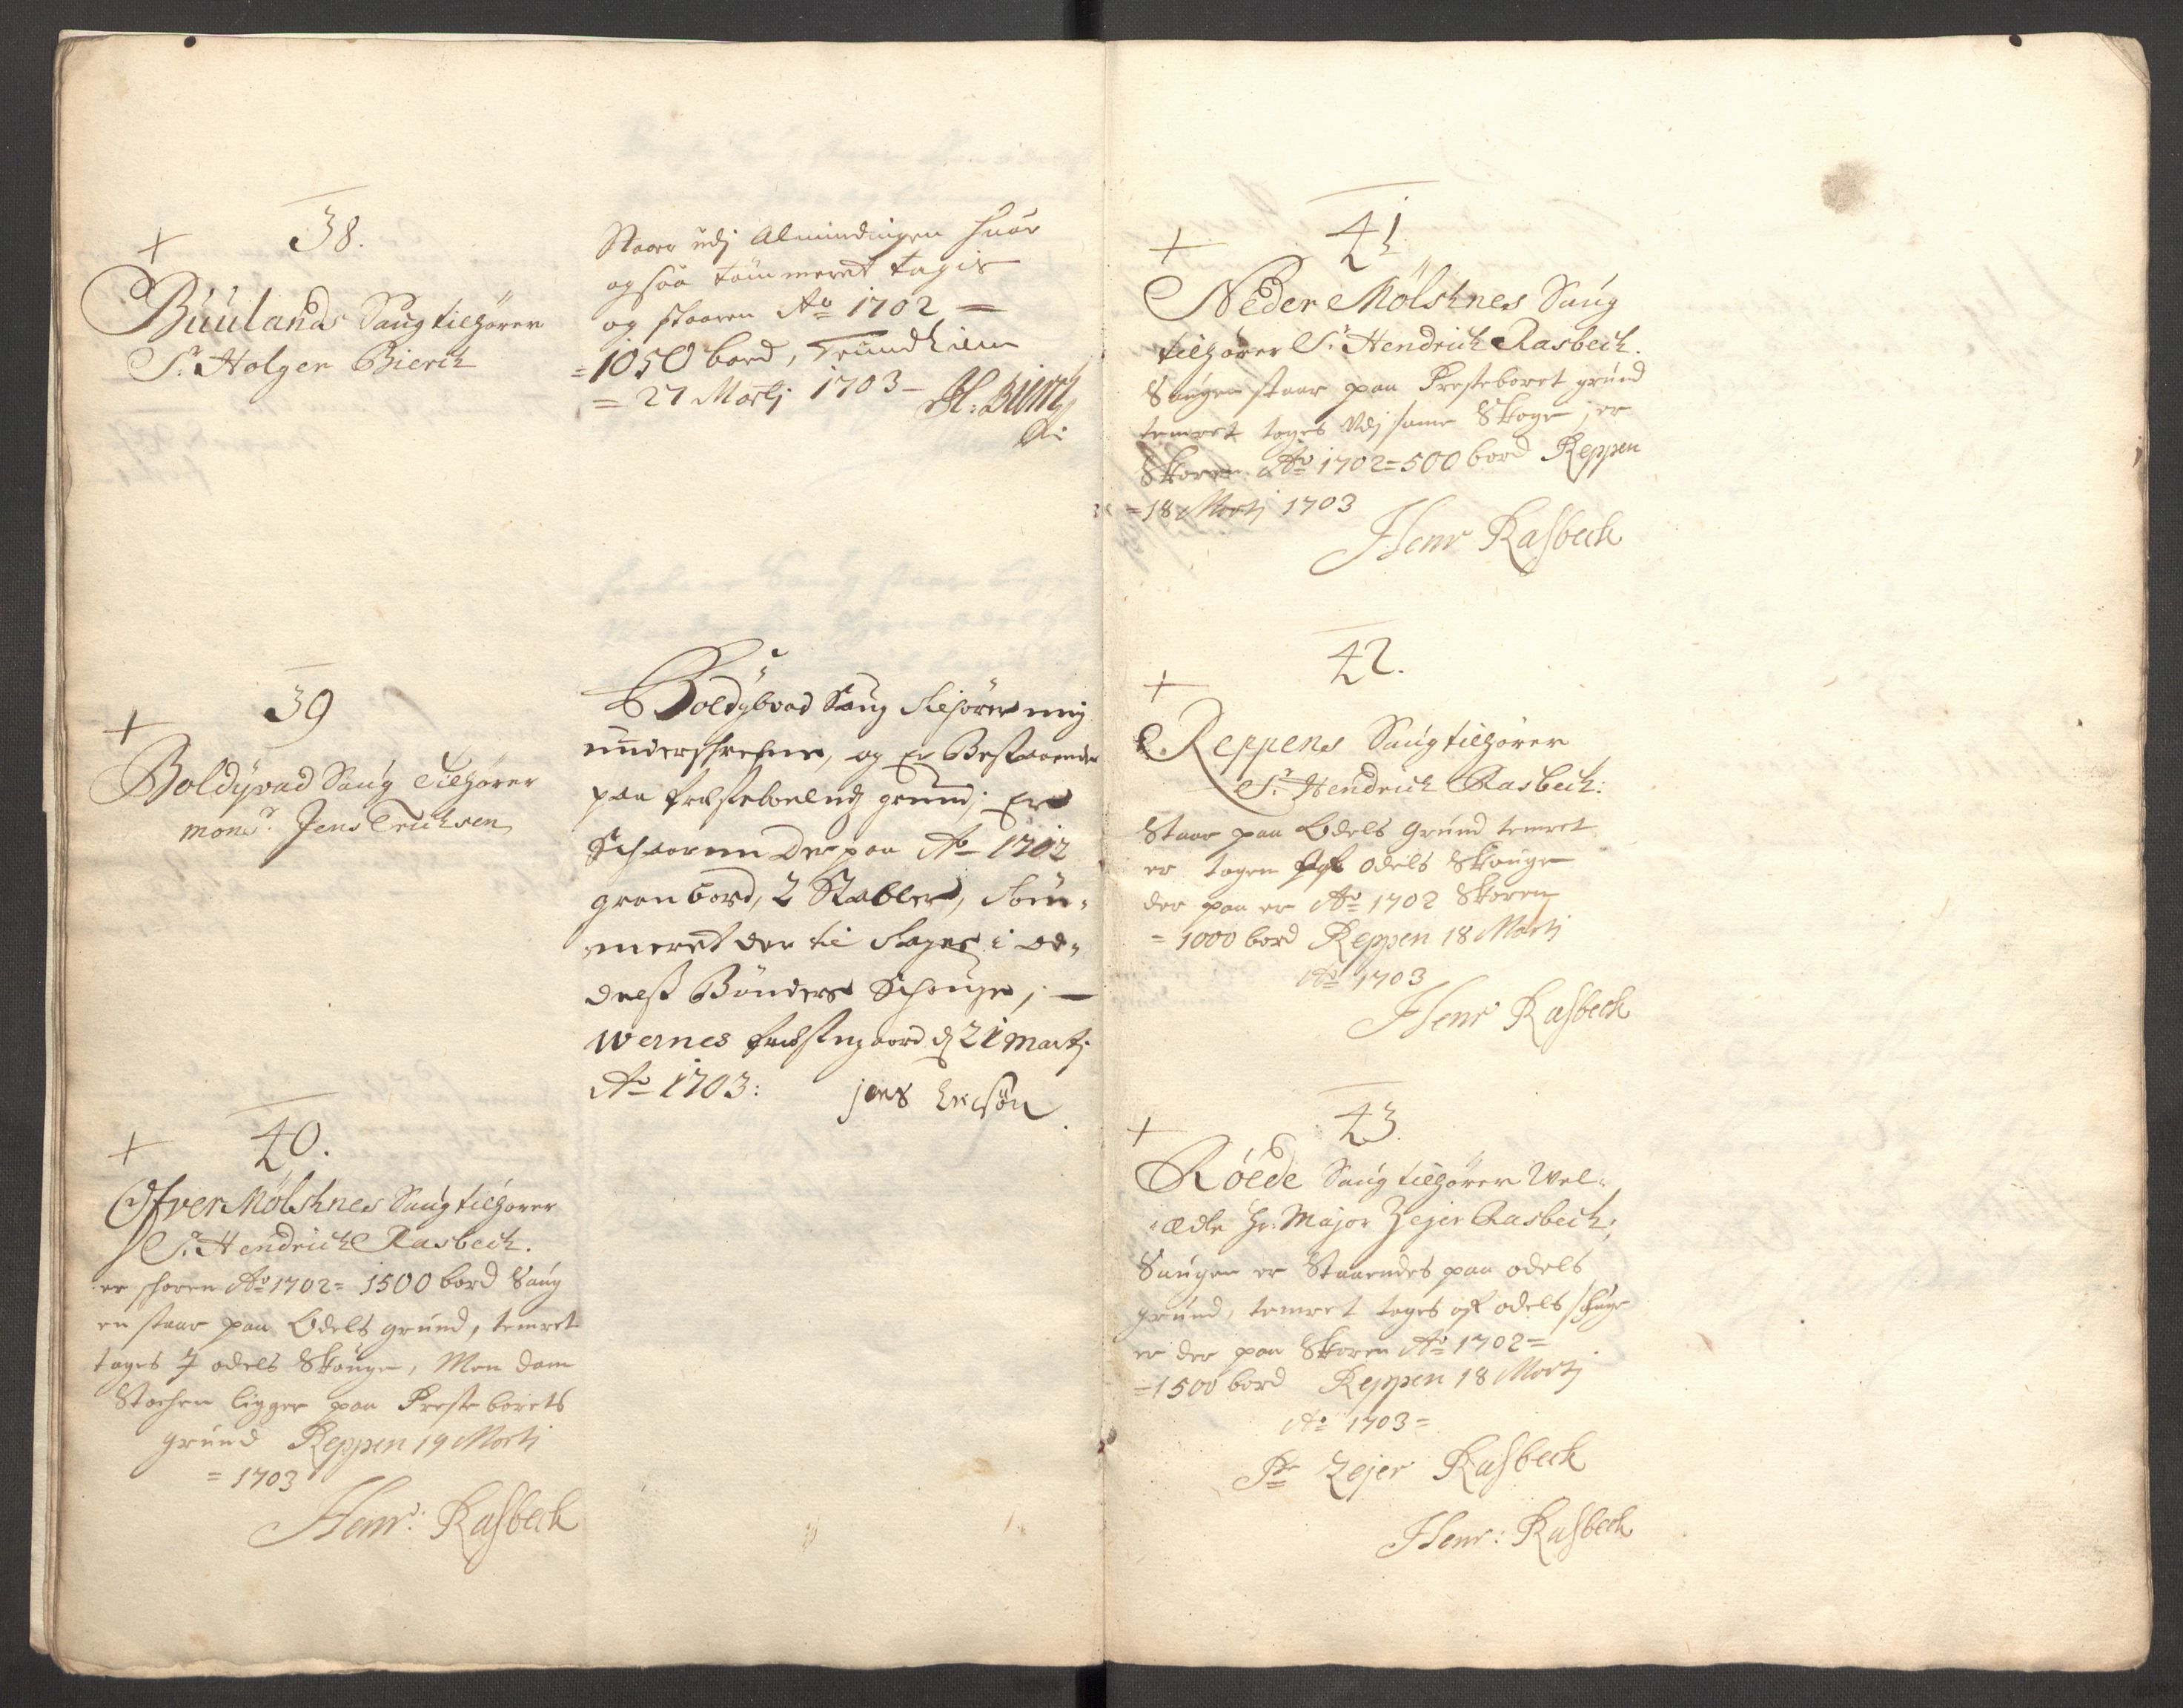 38.
+
Buulands Saug tilhører
Sr. Holger Bierch
Staar udj Almindingen huor
og saa tømmeret tagis
og skaaren Ao 1702 =
= 1050 bord, Trundhiem
= 27 Martj 1703 –
39
+
Boldyvad Saug Tilhører
monsr. Jens Erichsen
Boldybvad Saug tilhører mig
underskrefne, og Er Bestaaende
paa præsteboelidz grund; Er
Schaaren Der paa Ao 1702
gran bord, 2 Stabler, Töm-
meret der til tages i od-
delss Bönders Schouge, –
Wernes præstegaard d 21 Martj
Ao 1703: jens Ericsøn
40.
+
Ofver Mölshnes Saug tilhører
Sr. Hendrich Rasbech.
er skoren Ao 1702 = 1500 bord Saug
en staar paa Odels grund, temret
tages j odels Skouge, Men dam
Stochen ligger paa Preste borets
grund Reppen 19 Martj
= 1703
Henr: Rasbech
41
+
Neder Mölshnes Saug
tilhører Sr. Hendrich Rasbech.
Saugen staar paa Presteboret grund
temret tages udj samme Skoge, er
Skoren Ao 1702 = 500 bord Reppen
= 18 Martj 1703
Henr Rasbech
42.
+
Reppens Saug tilhører
Sr. Hendrich Rasbech:
Staar paa Odels Grund temret
er tagen af odels Skouge
der paa er Ao 1702 Skoren
= 1000 bord Reppen 18 Martj
Ao 1703
Henr Rasbech
43.
+
Röede Saug tilhører Wel-
-ædle Hr. Major Zejer Rasbech,
Saugen er Staaendes paa odels
grund, temret tages af odels skuge
er der paa Skoren Ao 1702 =
= 1500 bord Reppen 18 Martj
Ao 1703 =
Zejer Rasbech
Henr: Rasbech